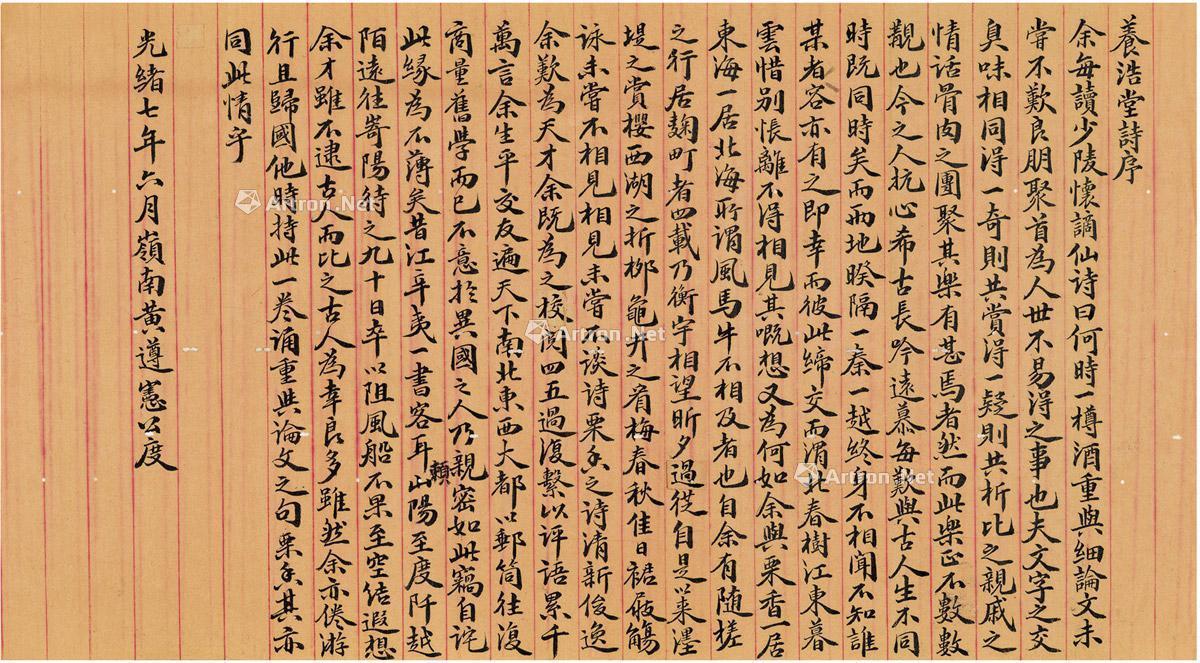 養浩堂詩序
余每讀少陵懷謫仙詩曰何時一樽酒重與細論文未
嘗不歎良朋聚首為人世不易得之事也夫文字之交
臭味相同得一奇則共賞得一疑則共析比之親戚之
情話骨肉之團聚其樂有甚焉者然而此樂正不數數
覯也今之人抗心希古長吟遠慕每歎與古人生不同
時既同時矣而兩地暌隔一秦一越終身不相聞不知誰
某者容亦有之即幸而彼此締交而渭北春樹江東暮
雲惜别悵離不得相見其嘅想又為何如余與栗香一居
東海一居北海所謂風馬牛不相及者也自余有随槎
之行居麹町者四載乃衡宇相望昕夕過從自是以來墨
堤之賞櫻西湖之折柳龜井之看梅春秋佳日裙屐觴
詠未嘗不相見相見未嘗不談詩栗香之詩清新俊逸
余歎為天才余既為之校閱四五過復繫以评語累千
萬言余生平交友遍天下南北東西大都以郵筒往復
商量舊學而已不意於異國之人乃親密如此竊自詫
此緣為不薄矣昔江辛夷一書客耳山陽至度阡越
賴
陌遠往崎陽待之九十日卒以阻風船不果至空结遐想
余才雖不逮古人而比之古人為幸良多雖然余亦倦游
行且歸國他時持此一卷诵重與論文之句栗香其亦
同此情乎
光緒七年六月嶺南黄遵憲公度
Artron.Net
Artron.Net
Artron.Net